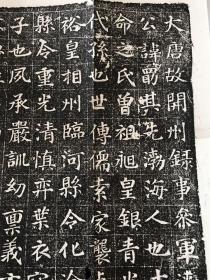 大唐故開州錄事參軍
公諱罰其先渤海人也
命之氏曾祖祖皇銀青
代孫也世傳儒素家襲
裕皇相州臨河縣令化
縣令重光清慎弈葉衣
子也夙承嚴訓幼禀義